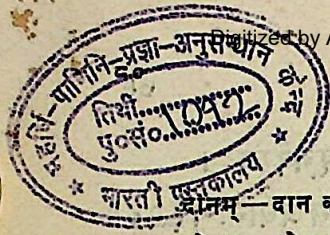 Digitized by A
महर्षि-पाणिनि-प्रज्ञा-अनुसन्धान केन्द्र
तिथी..................
पु०सं०....1042....
भारती पुस्तकालय
दानम्—दान क